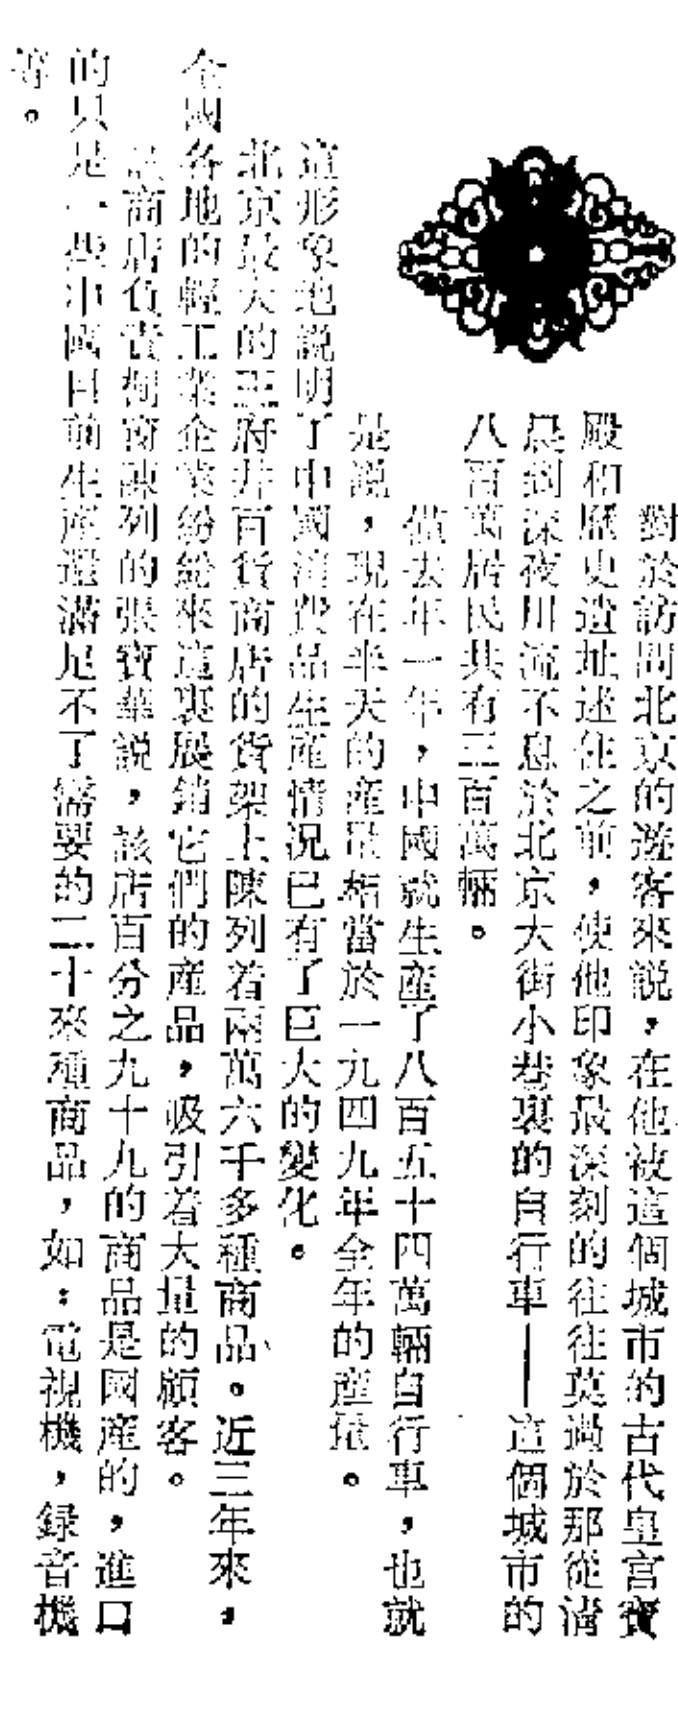 對於訪問北京的遊客來說，在他被這個城市的古代皇宮寶
殿和歷史遺址迷住之前，使他印象最深刻的往往莫過於那從清
晨到深夜川流不息於北京大街小巷裏的自行車——這個城市的
八百萬居民共有三百萬輛。
僅去年一年，中國就生產了八百五十四萬輛自行車，也就
是說，現在半天的產量相當於一九四九年全年的產量。
這形象地說明了中國消費品生產情況已有了巨大的變化。
北京最大的王府井百貨商店的貨架上陳列着兩萬六千多種商品。近三年來，
全國各地的輕工業企業紛紛來這裏展銷它們的產品，吸引着大量的顧客。
商店負責櫥窗陳列的張寶華說，該店百分之九十九的商品是國產的，進口
的只是一些中國目前生產還滿足不了需要的二十來種商品，如：電視機，錄音機
等。